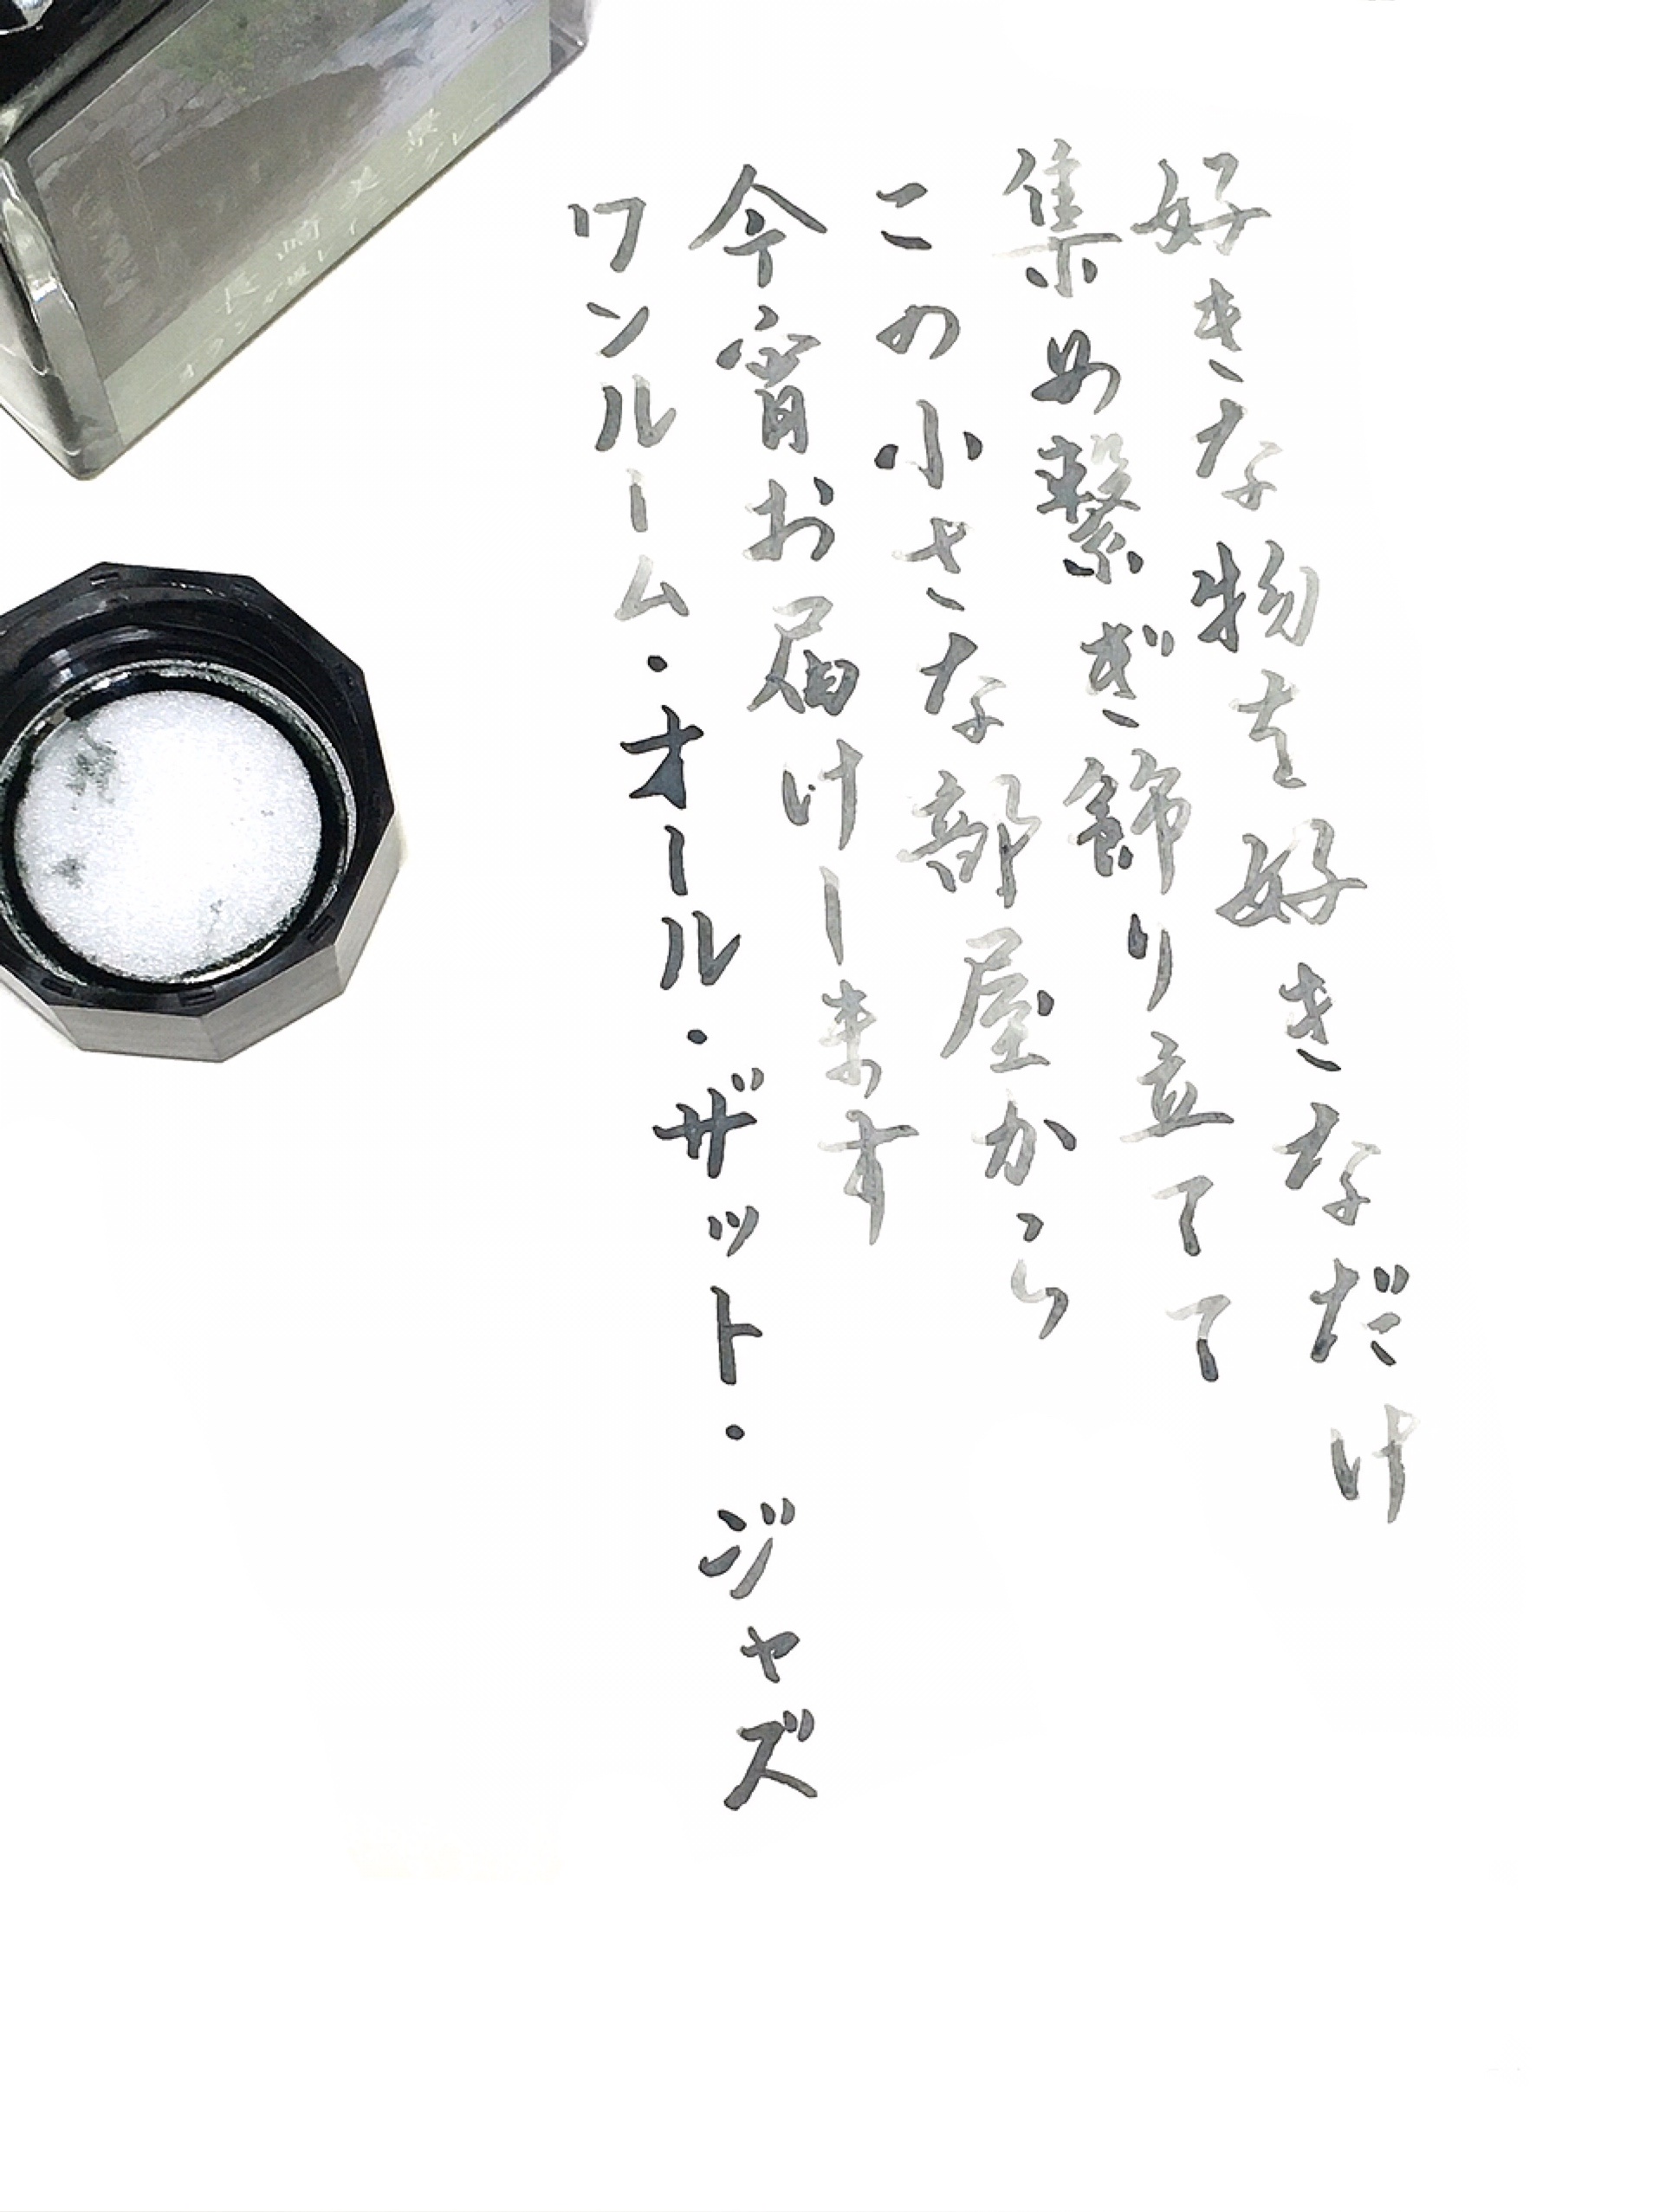 好きな物を好きなだけ
集め繋ぎ飾り立てて
この小さな部屋から
今宵お届けします
ワンルーム・オール・ザット・ジャズ